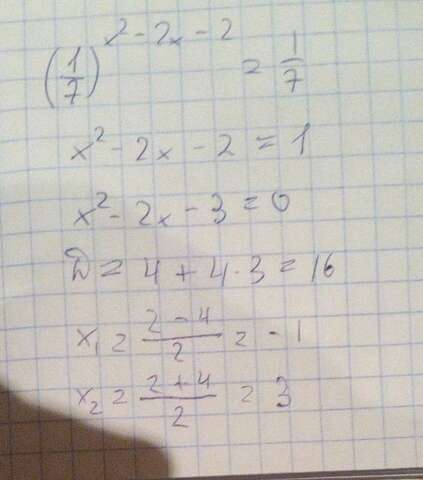 (1/7)^(x² - 2x - 2) = 1/7
x² - 2x - 2 = 1
x² - 2x - 3 = 0
D = 4 + 4·3 = 16
x₁ = (2 - 4)/2 = -1
x₂ = (2 + 4)/2 = 3